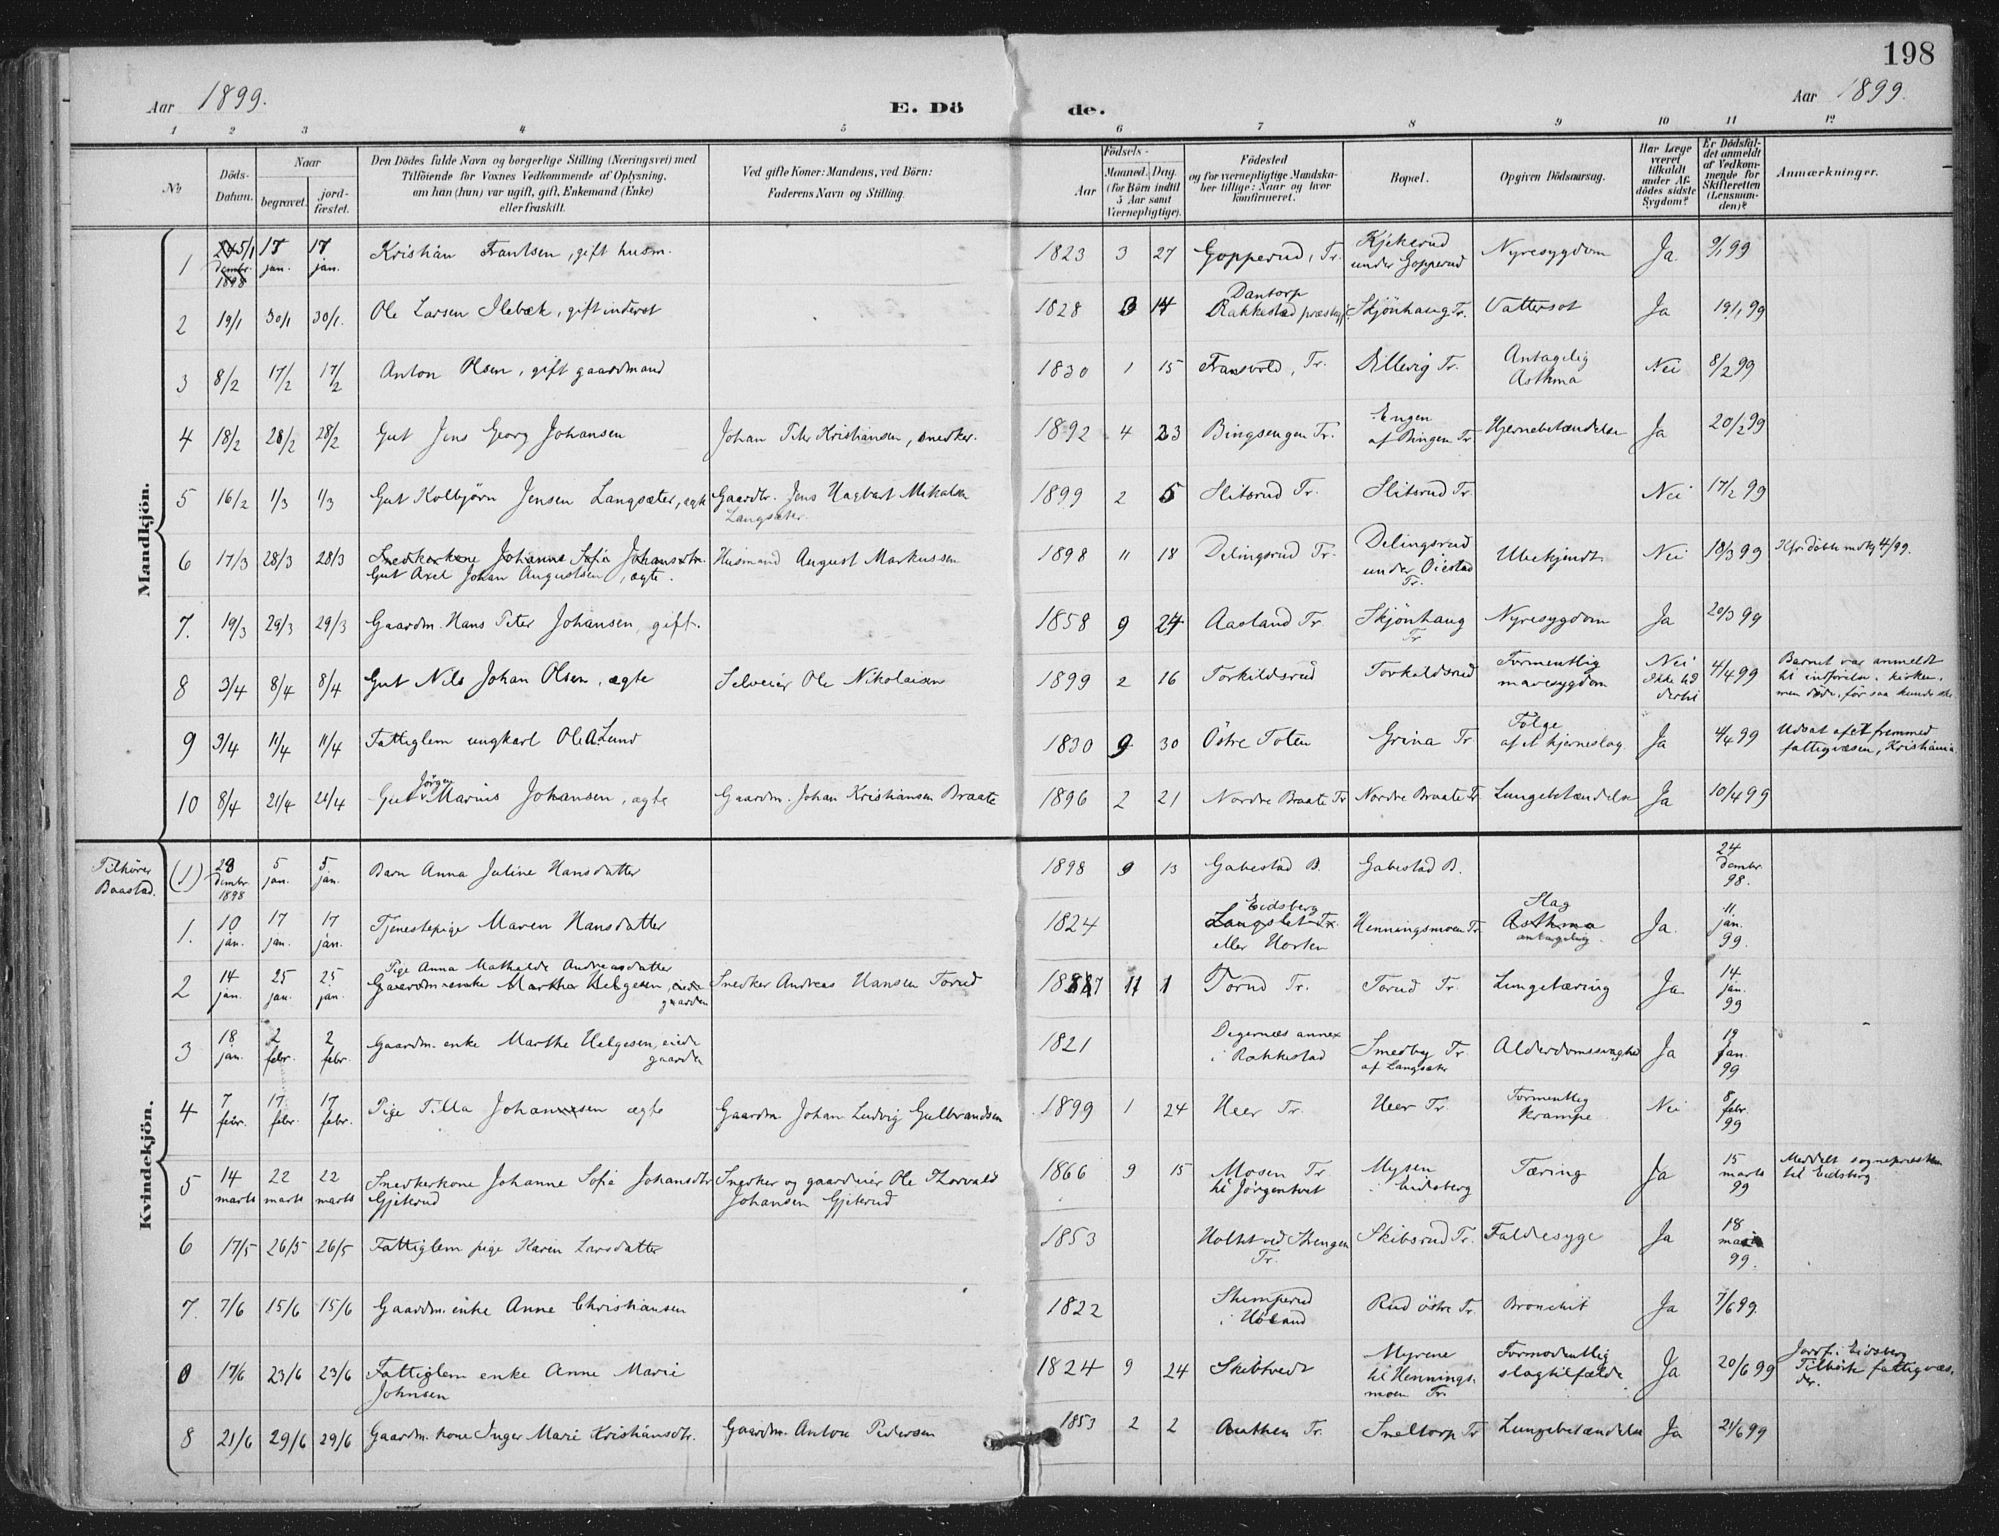 198
Aar 1899. E. Dö de. Aar 1899.
1 2 3 4 5 6 7 8 9 10 11 12
No
Döds-Datum.
Naar
begravet.
jord-fæstet.
Den Dödes fulde Navn og borgerlige Stilling (Næringsvei) med
Tilföiende for Voxnes Vedkommende af Oplysning,
om han (hun) var ugift, gift, Enkemand (Enke)
eller fraskilt.
Ved gifte Koner: Mandens, ved Börn:
Faderens Navn og Stilling.
Födsels-
Aar
Maaned. Dag.
(for Börn indtil
5 Aar samt
Værnepligtige).
Födested
og for værnepligtige Mandska-
ber tillige: Naar og hvor
konfirmeret.
Bopæl.
Opgiven Dödsaarsag.
Har Læge
været
tilkaldt
under Af-
dödes sidste
Sygdom?
Er Dödsfal-
det anmeldt
af Vedkom-
mende for
Skifteretten
(Lensman-
den)?
Anmærkninger.
Mandkjön.
1 5/1 17 jan. 17 jan. Kristian Frantsen, gift husm. 1823 3 27 Gopperud, Tr. Kjekerud under Gopperud Nyresygdom Ja 9/1 99
2 19/1 30/1 30/1. Ole Larsen Ilebæk, gift inderst 1828 3 14 Dantorp Rakkestad præstegj. Skjönhaug Tr. Vattersot Ja 19/1 99
3 8/2 17/2 17/2 Anton Olsen, gift gaardmand 1830 1 15 Fransvold, Tr. Dillevig Tr. Antagelig Asthma Nei 8/2 99
4 18/2 28/2 28/2 Gut Jens Georg Johansen Johan Peter Kristiansen, snedker. 1892 4 23 Bingsengen Tr. Engen af Bingen Tr Hjernebetændelse Ja 20/2 99
5 16/2 1/3 1/3 Gut Kolbjörn Jensen Langsæter, ægte Gaardbr. Jens Hagbart Mikalsen Langsæter. 1899 2 5 Slitsrud Tr. Slitsrud Tr. Nei 17/2 99
6 17/3 28/3 28/3 Snedkerkone Johanne Sofia Johansdtr. Gut Axel Johan Augustsen, ægte. Husmand August Markussen 1898 11 18 Delingsrud Tr. Delingsrud under Öiestad Tr. Ubekjendt. Nei 18/3 99 Kfr. döbte mtkj 4/99.
7. 19/3 29/3 29/3 Gaardm. Hans Peter Johansen, gift. 1858 9 24 Aasland Tr. Skjönhaug Tr Nyresygdom Ja 20/3 99
8 3/4 8/4 8/4 Gut Nils Johan Olsen, ægte Selveier Ole Nikolaisen 1899 2 16 Torkildsrud Torkildsrud Formentlig mavesygdom Nei ikke tid dertil 4/4 99 Barnet var anmeldt til indförelse i kirken, men döde, för saa kunde ske
9 3/4 11/4 11/4 Fattiglem ungkarl Ole A. Lund 1830 9 30 Östre Toten Grina Tr Fölge af et hjerneslag. Ja 4/4 99 Udsat af et fremmed fattigvæsen, Kristiania
10 8/4 21/4 21/4 Gut Jörgen Marius Johansen, ægte Gaardm. Johan Kristiansen Braate 1896 2 21 Nordre Braate Tr Nordre Braate Tr Lungebetændelse Ja 10/4 99
Tilhörer Baastad.
Kvindekjön.
(1) 23 dembr. 1898 5 jan. 5 jan. Barn Anna Juline Hansdatter 1898 9 13 Gabestad B. Gabestad B. 24 dembr. 98.
1. 10 jan. 17 jan. 17 jan. Tjenestepige Maren Hansdatter 1824 Eidsberg Langslet Tr. eller Horten Henningsmoen Tr. Slag Asthma antagelig. Ja. 11 jan. 99.
2 14 jan. 25 jan. 25 jan. Pige Anna Mathilde Andreasdatter Gaardm. enke Marthe Helgesen, eiede gaarden Snedker Andreas Hansen Torud 1887 11 1 Torud Tr. Torud Tr. Lungetæring Ja 14 jan. 99
3 18 jan. 2 febr. 2 febr. Gaardm. enke Marthe Helgesen, eiede gaarden 1821 Degernæs annex i Rakkestad Smedby Tr. af Langsæter Alderdomssvaghed Ja 19 Jan. 99
4 7 febr. 17 febr. 17 febr. Pige Tilla Johansen ægte Gaardm Johan Ludvig Gulbrandsen 1899 1 24 Heer Tr. Heer Tr. Formentlig krampe Nei 8 febr. 99
5 14 marts 22 marts 22 marts Snedkerkone Johanne Sofia Johansdtr Gjikerud Snedker og gaardeier Ole Thorvald Johansen Gjikerud 1866 9 15 Mosen Tr til Jörgentvet Mysen i Eidsberg Tæring Ja 15 marts 99 Meddelt sognepresten til Eidsberg
6 17/5 26/5 26/5 Fattiglem pige Karen Larsdatter 1853 Holtet ved Skengen Tr. Skibsrud Tr. Faldesyge Ja 18 99.
7. 7/6 15/6 15/6 Gaardm. enke Anne Christiansen 1822 Skimperud i Höland Rud östre Tr. Bronchit Ja 7/6 99.
0 17/6 23/6 23/6 Fattiglem enke Anne Marie Johnsen 1824 9 24 Skibtvedt Myrene til Hennings-moen Tr. Formodentlig slagtilfælde Ja 20/6 99 Jordf. i Eidsberg Tilhörte fattigvæs. der.
8 21/6 29/6 29/6 Gaardm. kone Inger Marie Kristiansdtr. Gaardm. Anton Pedersen 1853 2 2 Aathen Tr. Sneltorp Tr Lungebetændelse Ja 21/6 99